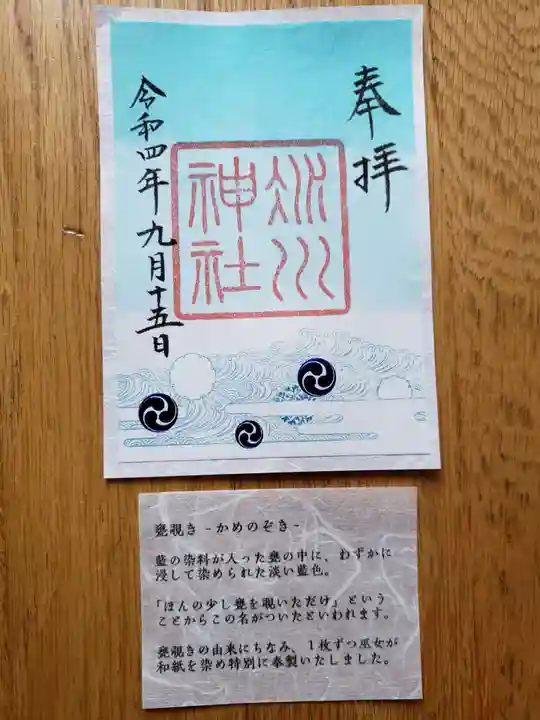 奉拝
氷川
神社
令和四年九月十五日
甕覗き -かめのぞき-
藍の染料が入った甕の中に、わずかに
浸して染められた淡い藍色。
「ほんの少し甕を覗いただけ」という
ことからこの名がついたといわれます。
甕覗きの由来にちなみ、１枚ずつ巫女が
和紙を染め特別に奉製いたしました。